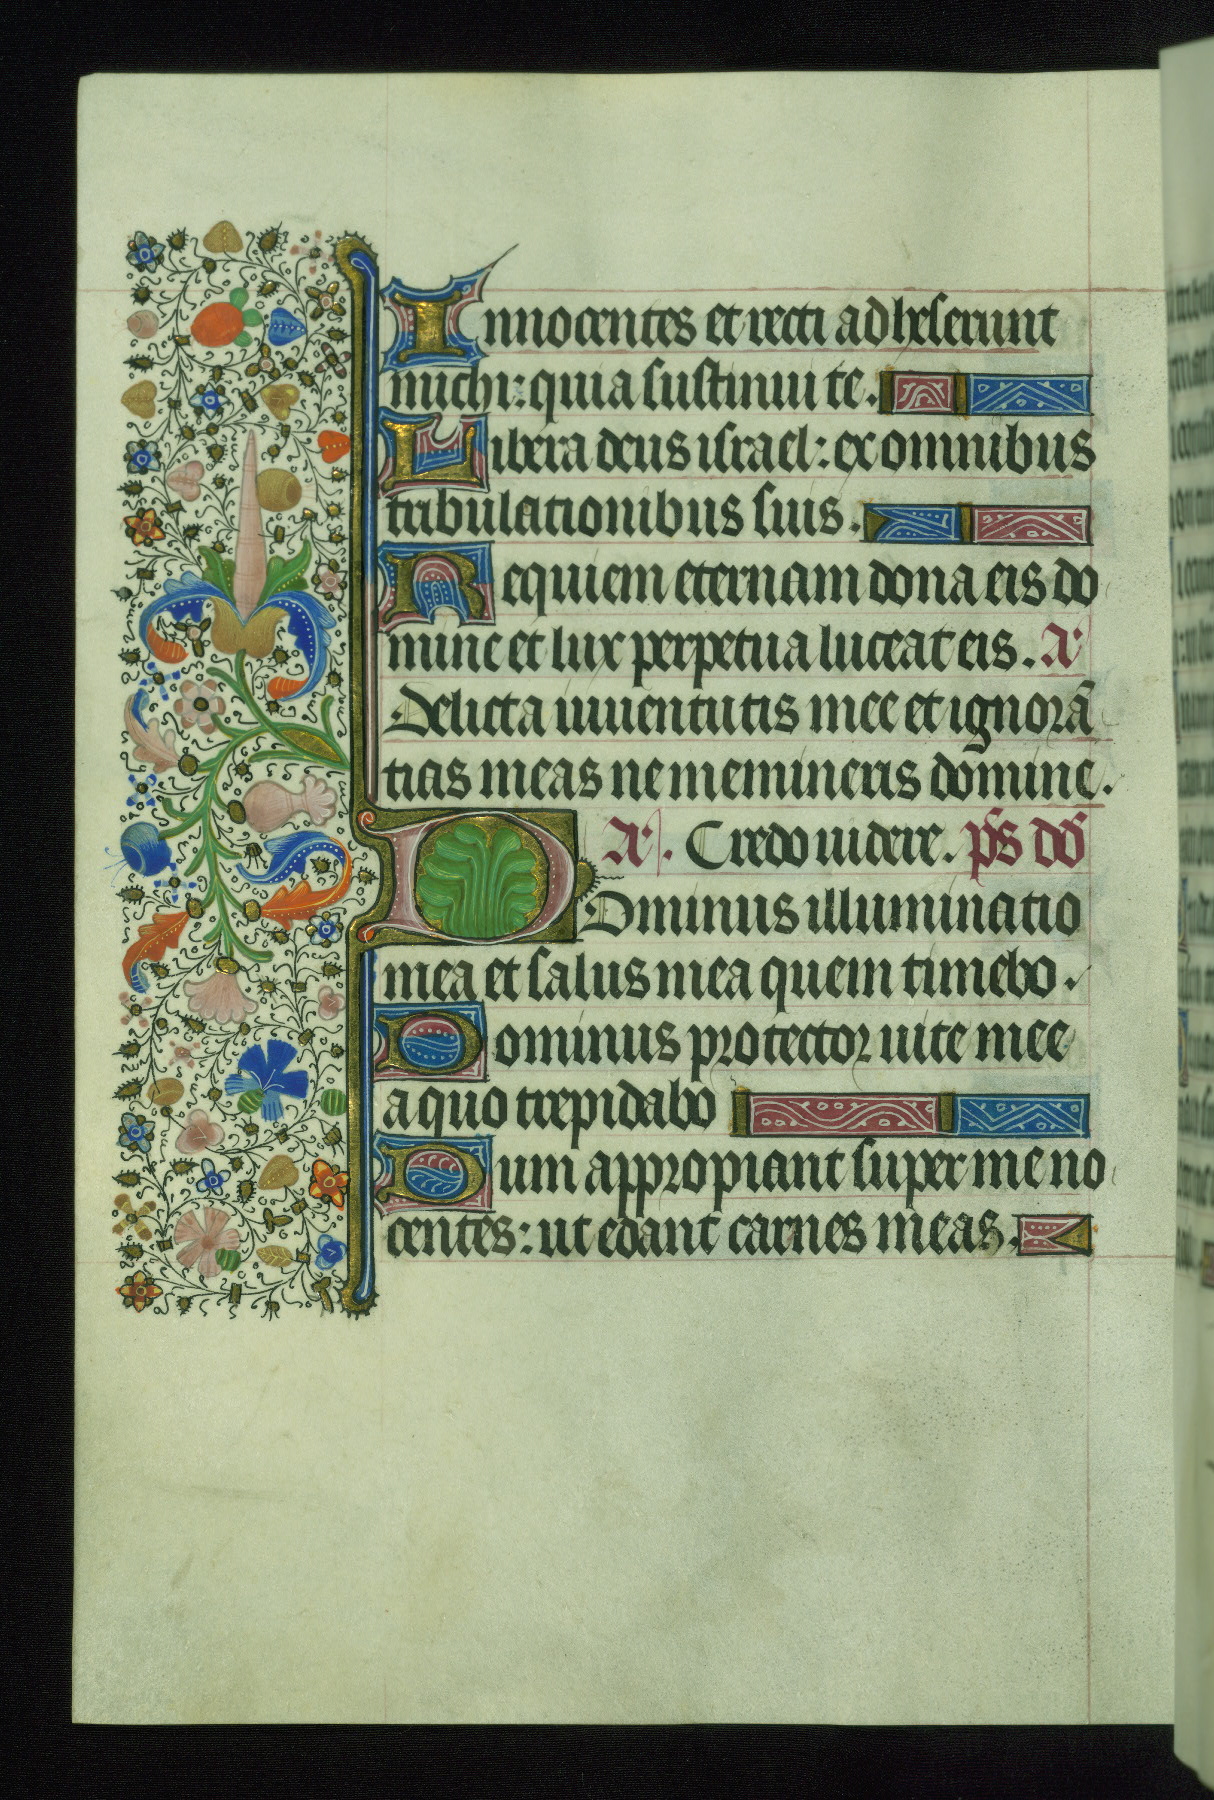 Innocentes et recti adheserunt
michi: quia sustinui te.
Libera deus israel: ex omnibus
tribulationibus suis.
Requiem eternam dona eis do
mine et lux perpetua luceat eis. A
Delicta iuuentutis mee et ignorã
tias meas ne memineris domine.
A. Credo uidere. ps dd
Dominus illuminatio
mea et salus mea quem timebo.
Dominus protector uite mee
a quo trepidabo
Dum appropiant super me no
centes: ut edant carnes meas.